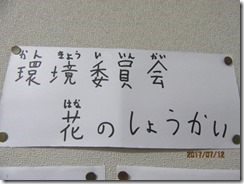 かん きょう い いん かい
環境委員会
はな
花のしょうかい
2017/07/12